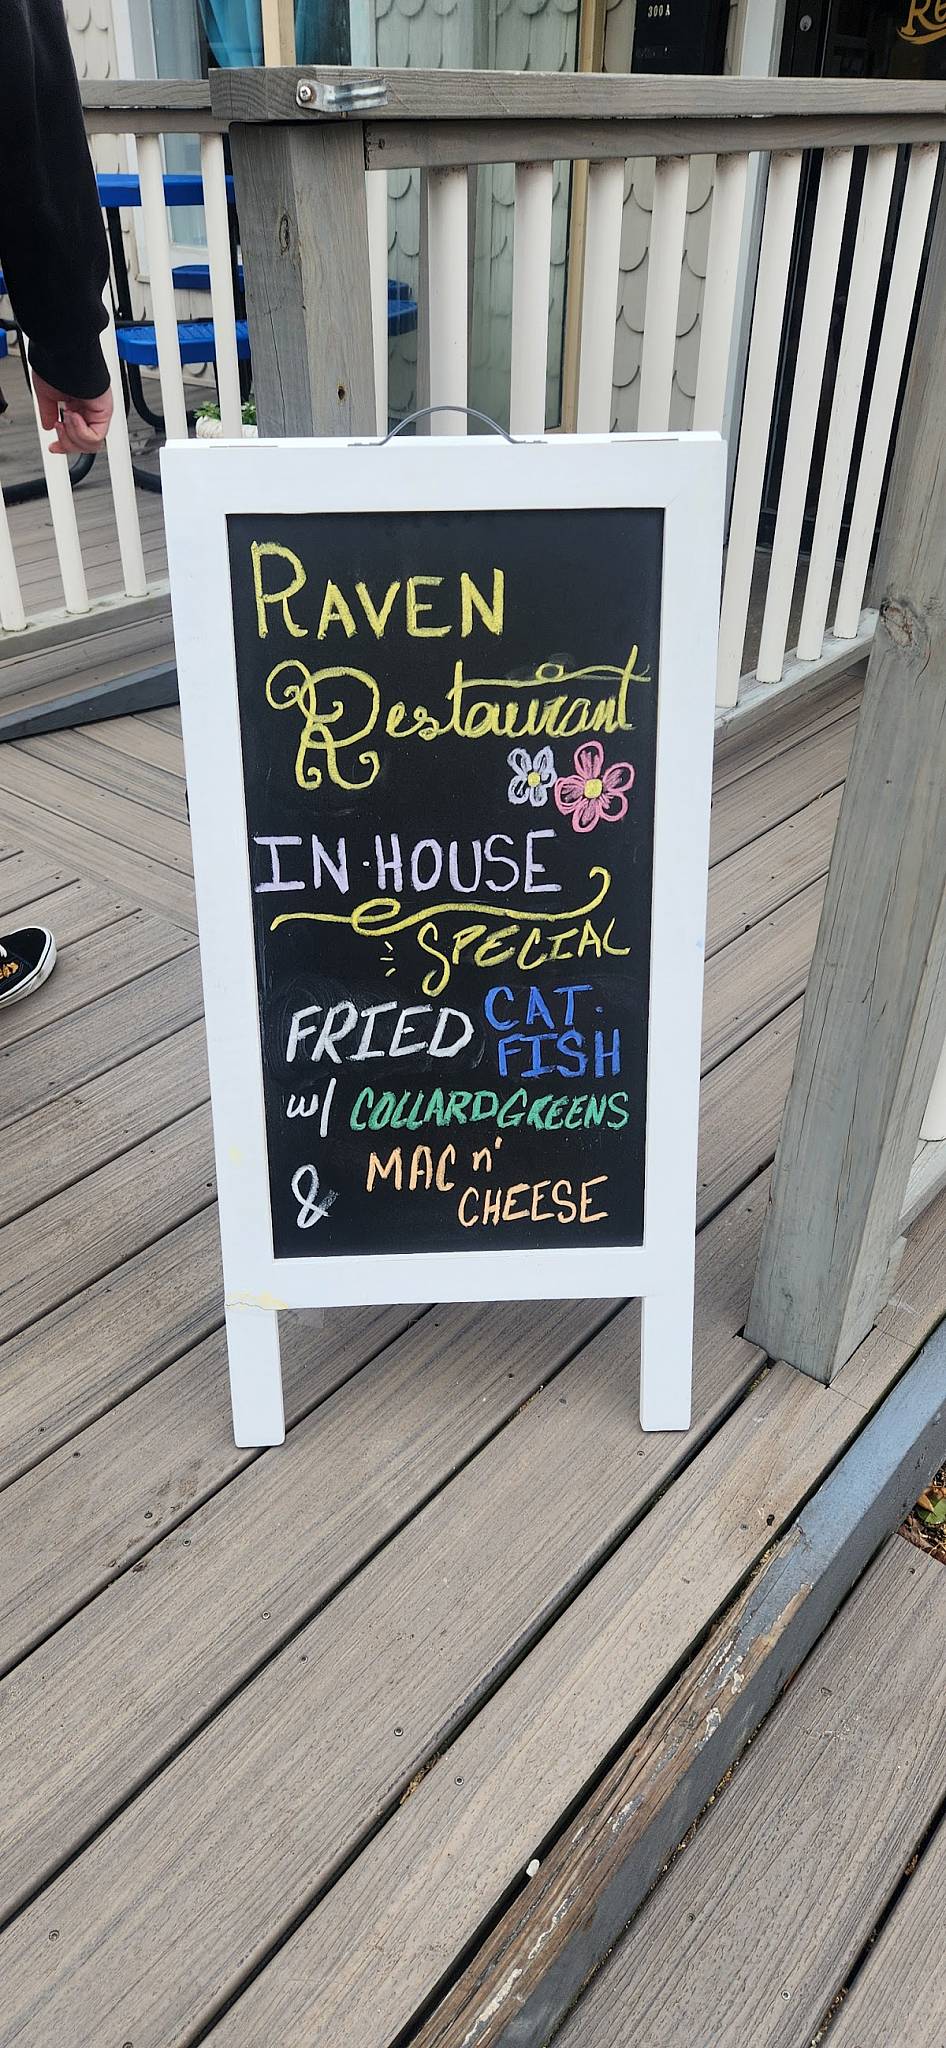 300 A
Re
RAVEN
Restaurant
IN-HOUSE
SPECIAL
FRIED CAT-
FISH
w/ COLLARD GREENS
& MAC n'
CHEESE